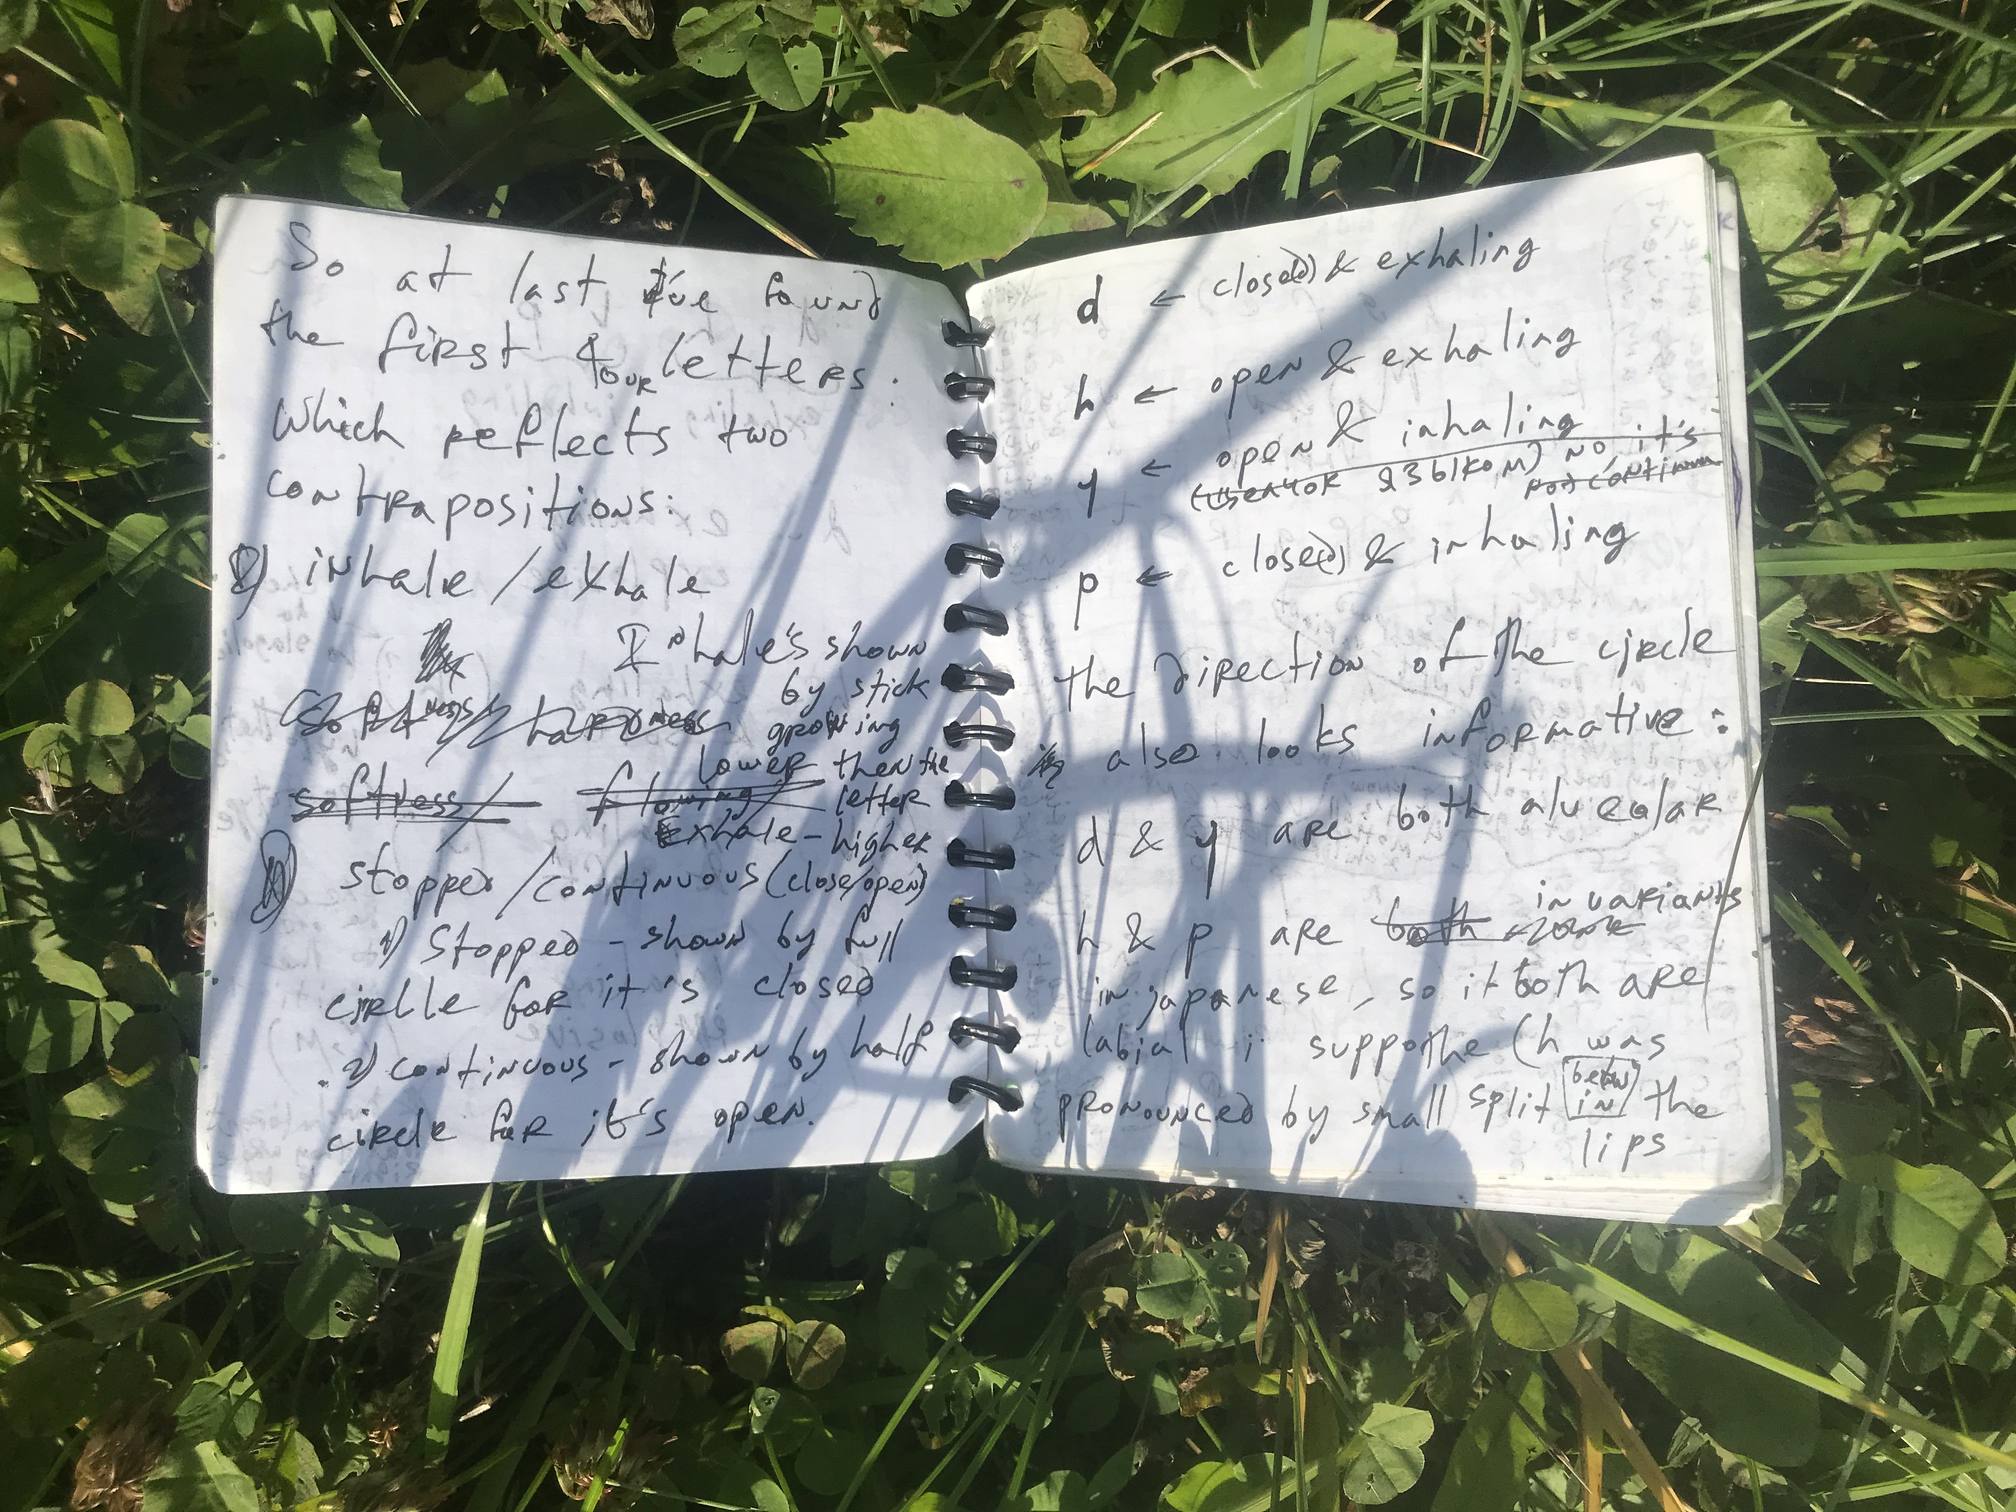 So at last I've found
the first four letters.
Which reflects two
contrapositions:
inhale / exhale
Inhale's shown
by stick
softness / hardness growing
lower then the
softness / flowing / letter
Exhale - higher
stopped / continuous (close/open)
1) Stopped - shown by full
circle for it's closed
2) continuous - shown by half
circle for it's open.
d ← close(d) & exhaling
h ← open & exhaling
y ← open & inhaling
язычком) no it's
not continuu
p ← close(d) & inhaling
the direction of the circle
also looks informative:
d & y are both alveolar
h & p are both in variants
in japanese, so it both are
labial i suppothe (h was
pronounced by small split below
in the
lips